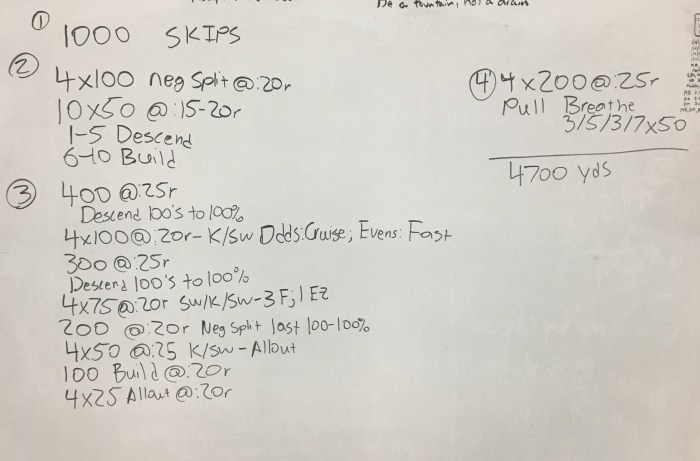 Be a fountain, not a drain
① 1000 SKIPS
② 4x100 neg Split @:20r
10x50 @:15-20r
1-5 Descend
6-10 Build
③ 400 @:25r
Descend 100's to 100%
4x100@:20r- K/SW Odds:Cruise; Evens: Fast
300 @:25r
Descend 100's to 100%
4x75@:20r SW/K/SW-3F;1 EZ
200 @:20r Neg Split last 100-100%
4x50 @:25 K/SW-Allout
100 Build @:20r
4x25 Allout @:20r
④ 4x200@:25r
Pull Breathe
3/5/3/7x50
4700 yds